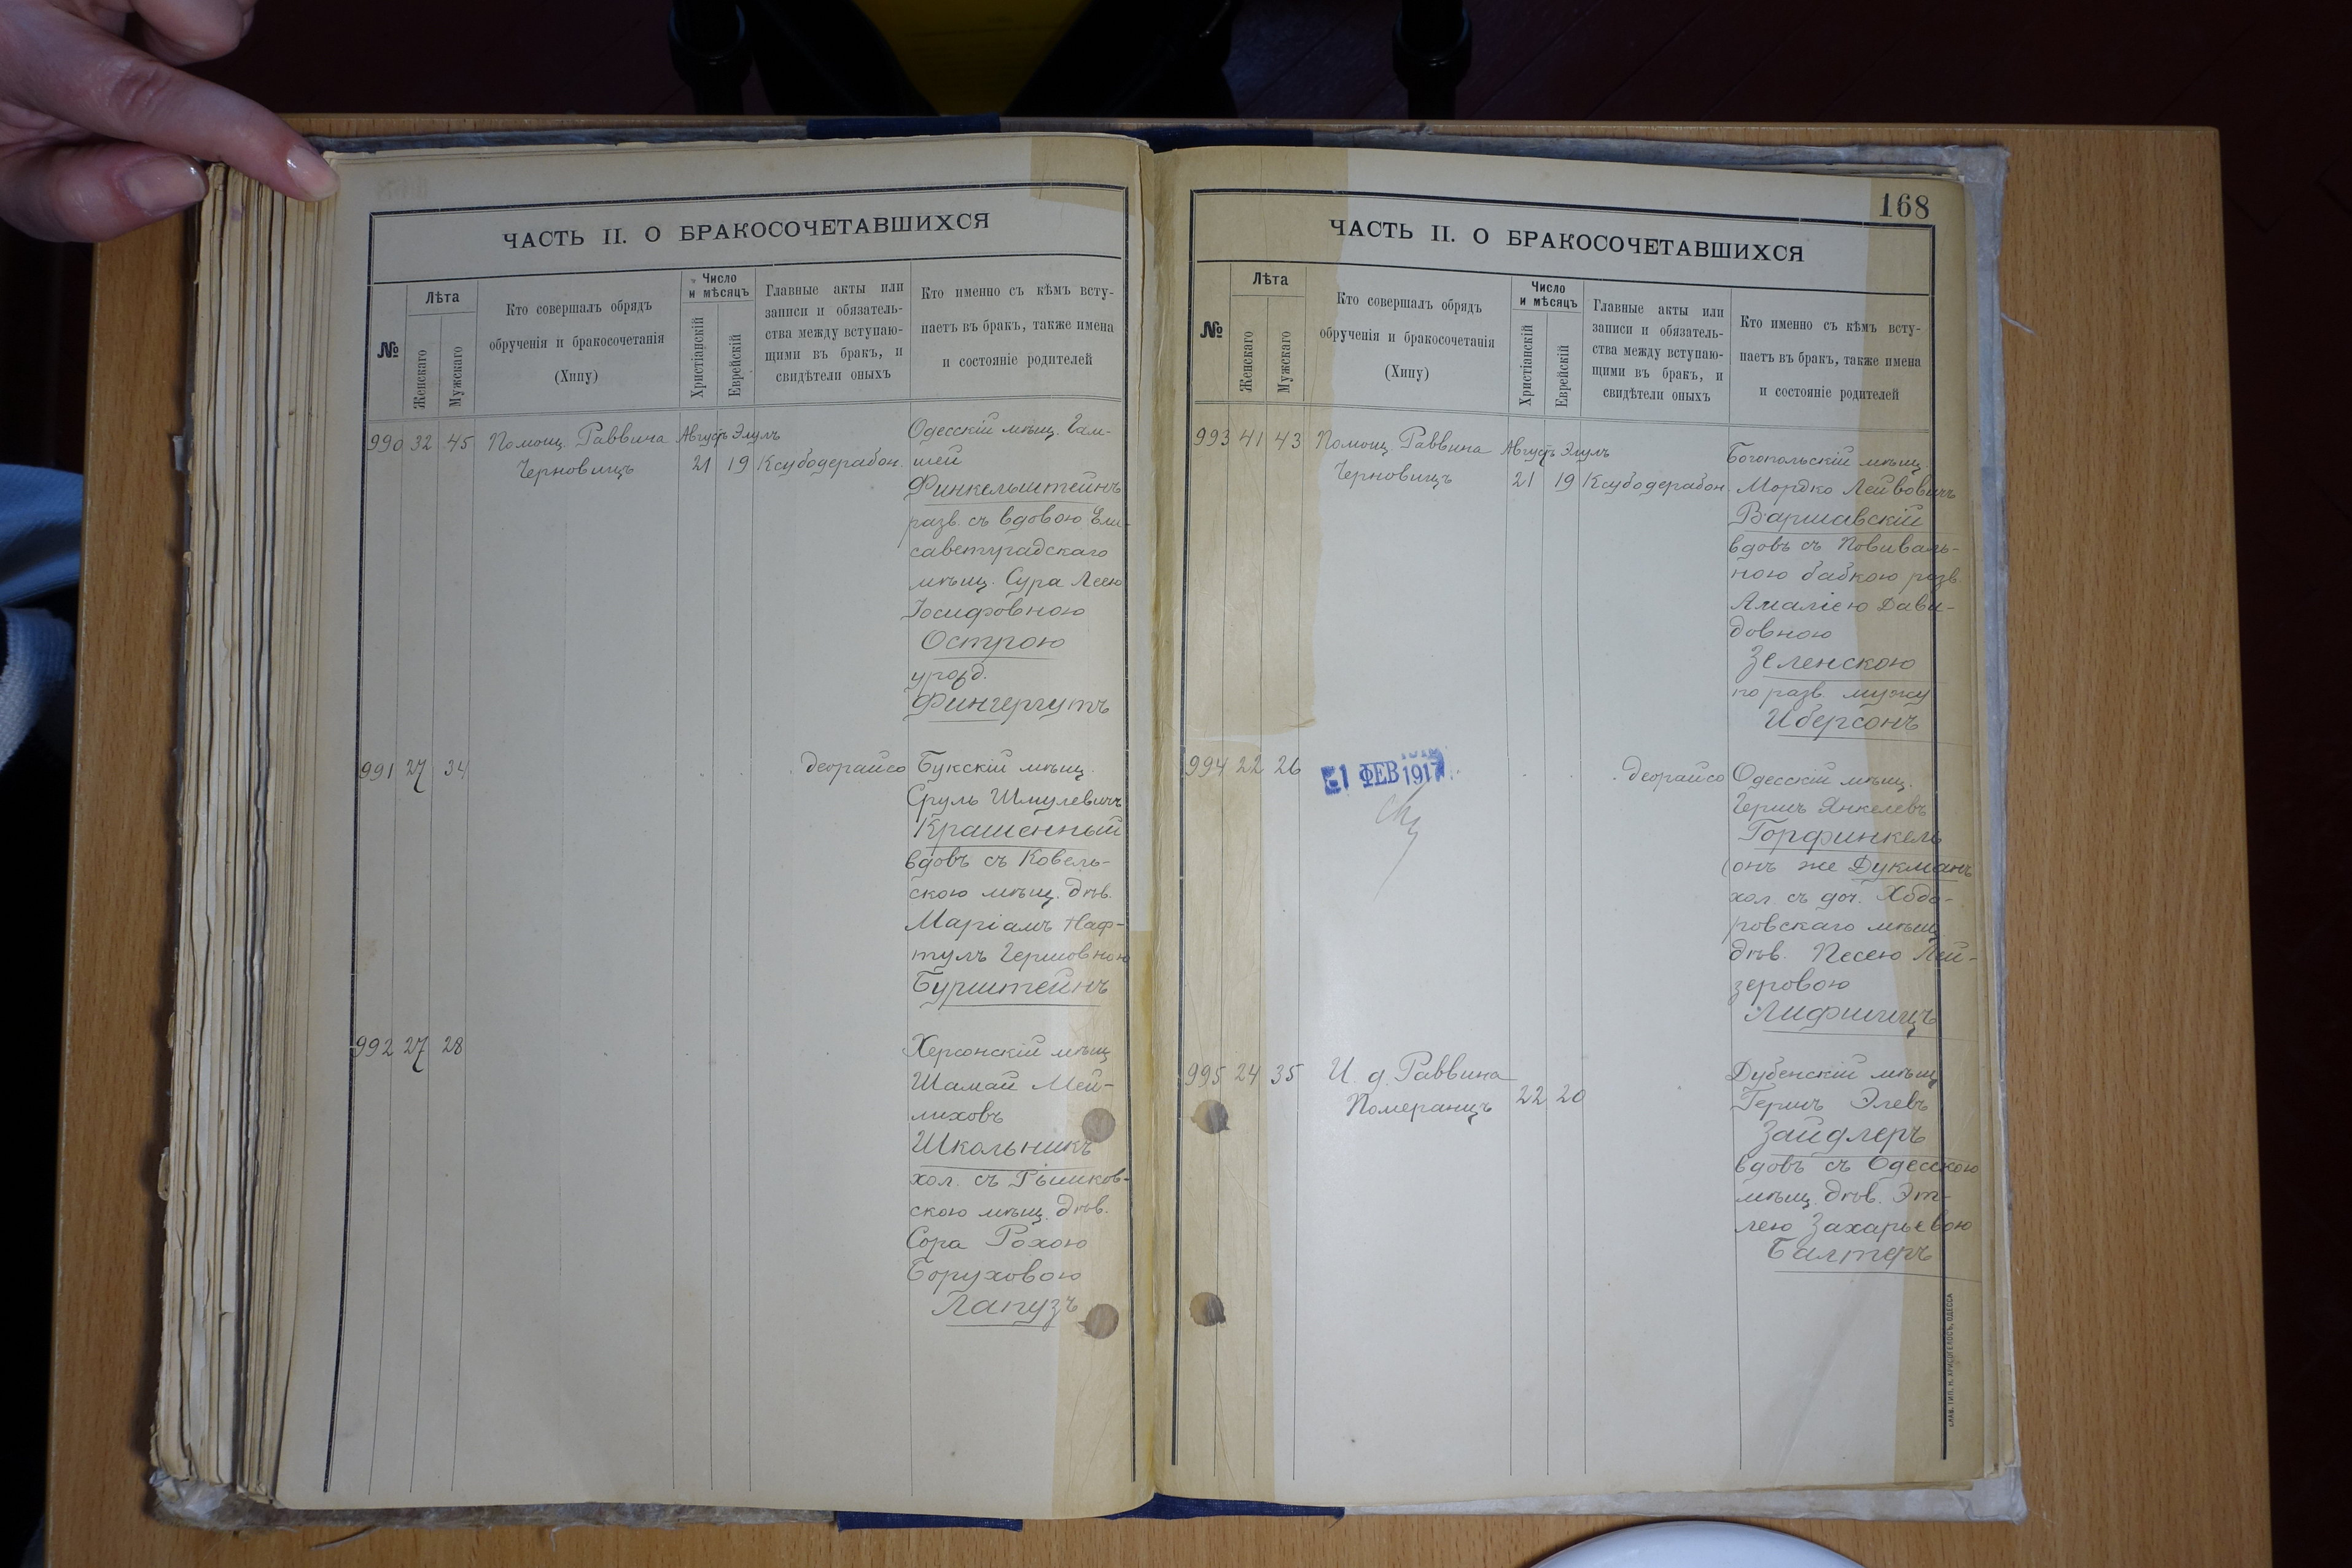 ЧАСТЬ II. О БРАКОСОЧЕТАВШИХСЯ
№
Лѣта
Женскаго
Мужскаго
Кто совершалъ обрядъ
обрученія и бракосочетанія
(Хипу)
Число
и мѣсяцъ
Христіанскій
Еврейскій
Главные акты или
записи и обязатель-
ства между вступаю-
щими въ бракъ, и
свидѣтели оныхъ
Кто именно съ кѣмъ всту-
паетъ въ бракъ, также имена
и состояніе родителей
990 32 45 Помощ. Раввина Августъ Элулъ
Черновицъ 21 19 Ксубодерабон.
Одесскій мѣщ. Гам-
шей
Финкельштейнъ
разв. съ вдовою Ели-
саветградскаго
мѣщ. Сура Леею
Іосифовною
Острою
урожд.
Фингергутъ
991 27 34 деорайсо Букскій мѣщ.
Сруль Шмулевичъ
Крашенный
вдовъ съ Ковель-
скою мѣщ. дѣв.
Маріамъ Наф-
тулъ Гершовною
Бурштейнъ
992 27 28 Херсонскій мѣщ
Шамай Мей-
лиховъ
Школьникъ
хол. съ Рышков-
скою мѣщ. дѣв.
Сора Рохою
Боруховою
Лапузъ
168
ЧАСТЬ II. О БРАКОСОЧЕТАВШИХСЯ
№
Лѣта
Женскаго
Мужскаго
Кто совершалъ обрядъ
обрученія и бракосочетанія
(Хипу)
Число
и мѣсяцъ
Христіанскій
Еврейскій
Главные акты или
записи и обязатель-
ства между вступаю-
щими въ бракъ, и
свидѣтели оныхъ
Кто именно съ кѣмъ всту-
паетъ въ бракъ, также имена
и состояніе родителей
993 41 43 Помощ. Раввина Августъ Элулъ
Черновицъ 21 19 Ксубодерабон.
Богопольскій мѣщ
Мордко Лейвовичъ
Варшавскій
вдовъ съ Повиваль-
ною бабкою разв.
Амаліею Дави-
довною
Зеленскою
по разв. мужу
Иберсонъ
994 22 26 1 ФЕВ 1917 деорайсо Одесскій мѣщ.
Гершъ Янкелевъ
Горфинкель
(онъ же Дукманъ
хол. съ доч. Ходо-
ровскаго мѣщ
дѣв. Песею Лей-
зеровою
Лифшицъ
995 24 35 И. д. Раввина
Померанцъ 22 20
Дубенскій мѣщ
Гершъ Элевъ
Зайдлеръ
вдовъ съ Одесскою
мѣщ. дѣв. Эт-
лею Захарьевою
Балтеръ
СЛАВ. ТИП. Н. ХРИСОГЕЛОСЪ, ОДЕССА